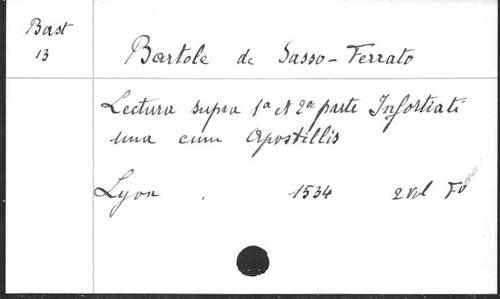 Bast
13
Bartole de Sasso-Ferrato
Lectura supra 1a et 2a parte Infortiati
una cum Apostillis
Lyon . 1534 2 vol Fo